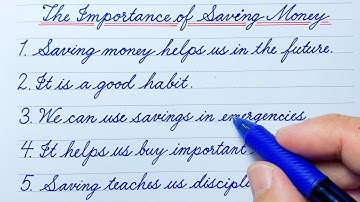 The Importance of Saving Money
1. Saving money helps us in the future.
2. It is a good habit.
3. We can use savings in emergencies.
4. It helps us buy important
5. Saving teaches us